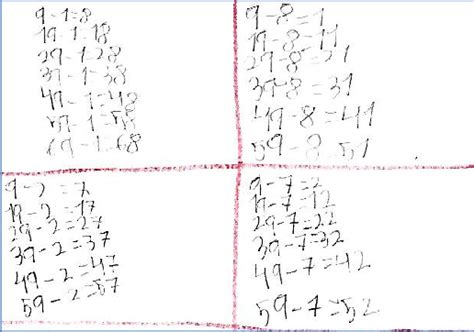 9-1=8
19-1=18
29-1=28
39-1=38
49-1=48
59-1=58
69-1=68
9-8=1
19-8=11
29-8=21
39-8=31
49-8=41
59-8 51
9-2=7
19-2=17
29-2=27
39-2=37
49-2=47
59-2=57
9-7=2
19-7=12
29-7=22
39-7=32
49-7=42
59-7=52